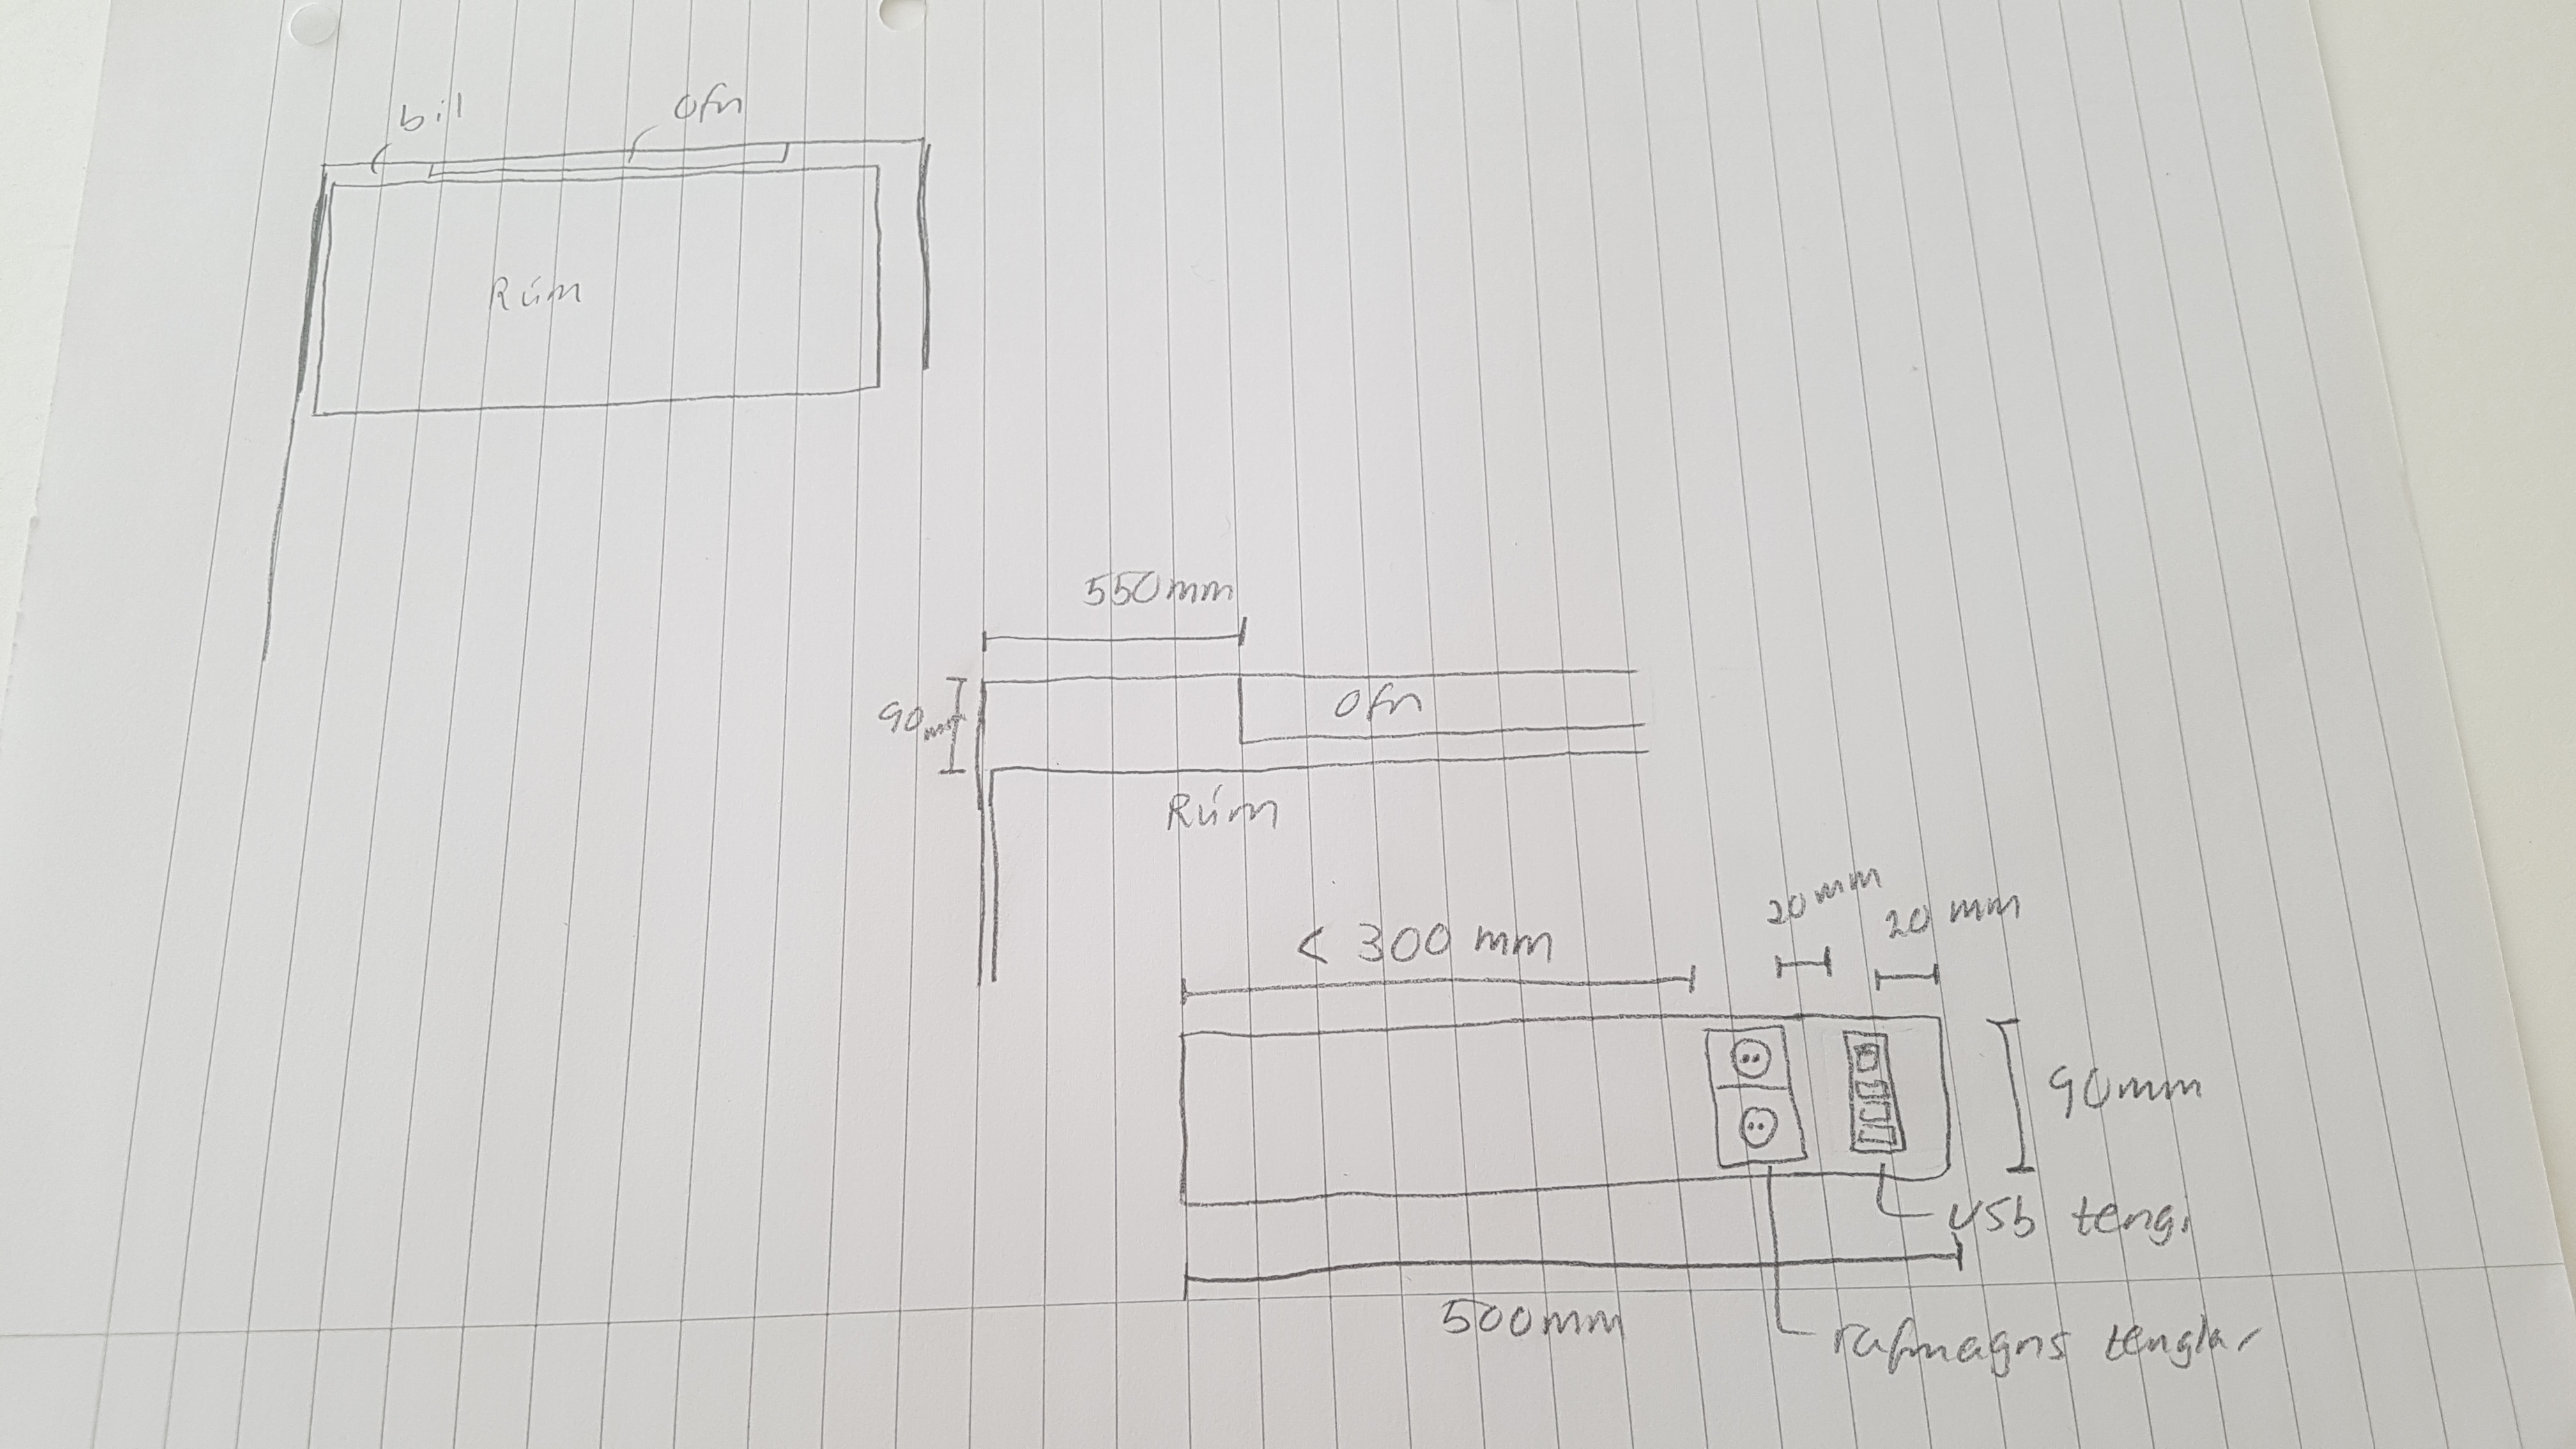 bil
Ofn
Rúm
550mm
90mm
Ofn
Rúm
< 300 mm
20mm
20 mm
90mm
USb teng.
500mm
rafmagns tenglar